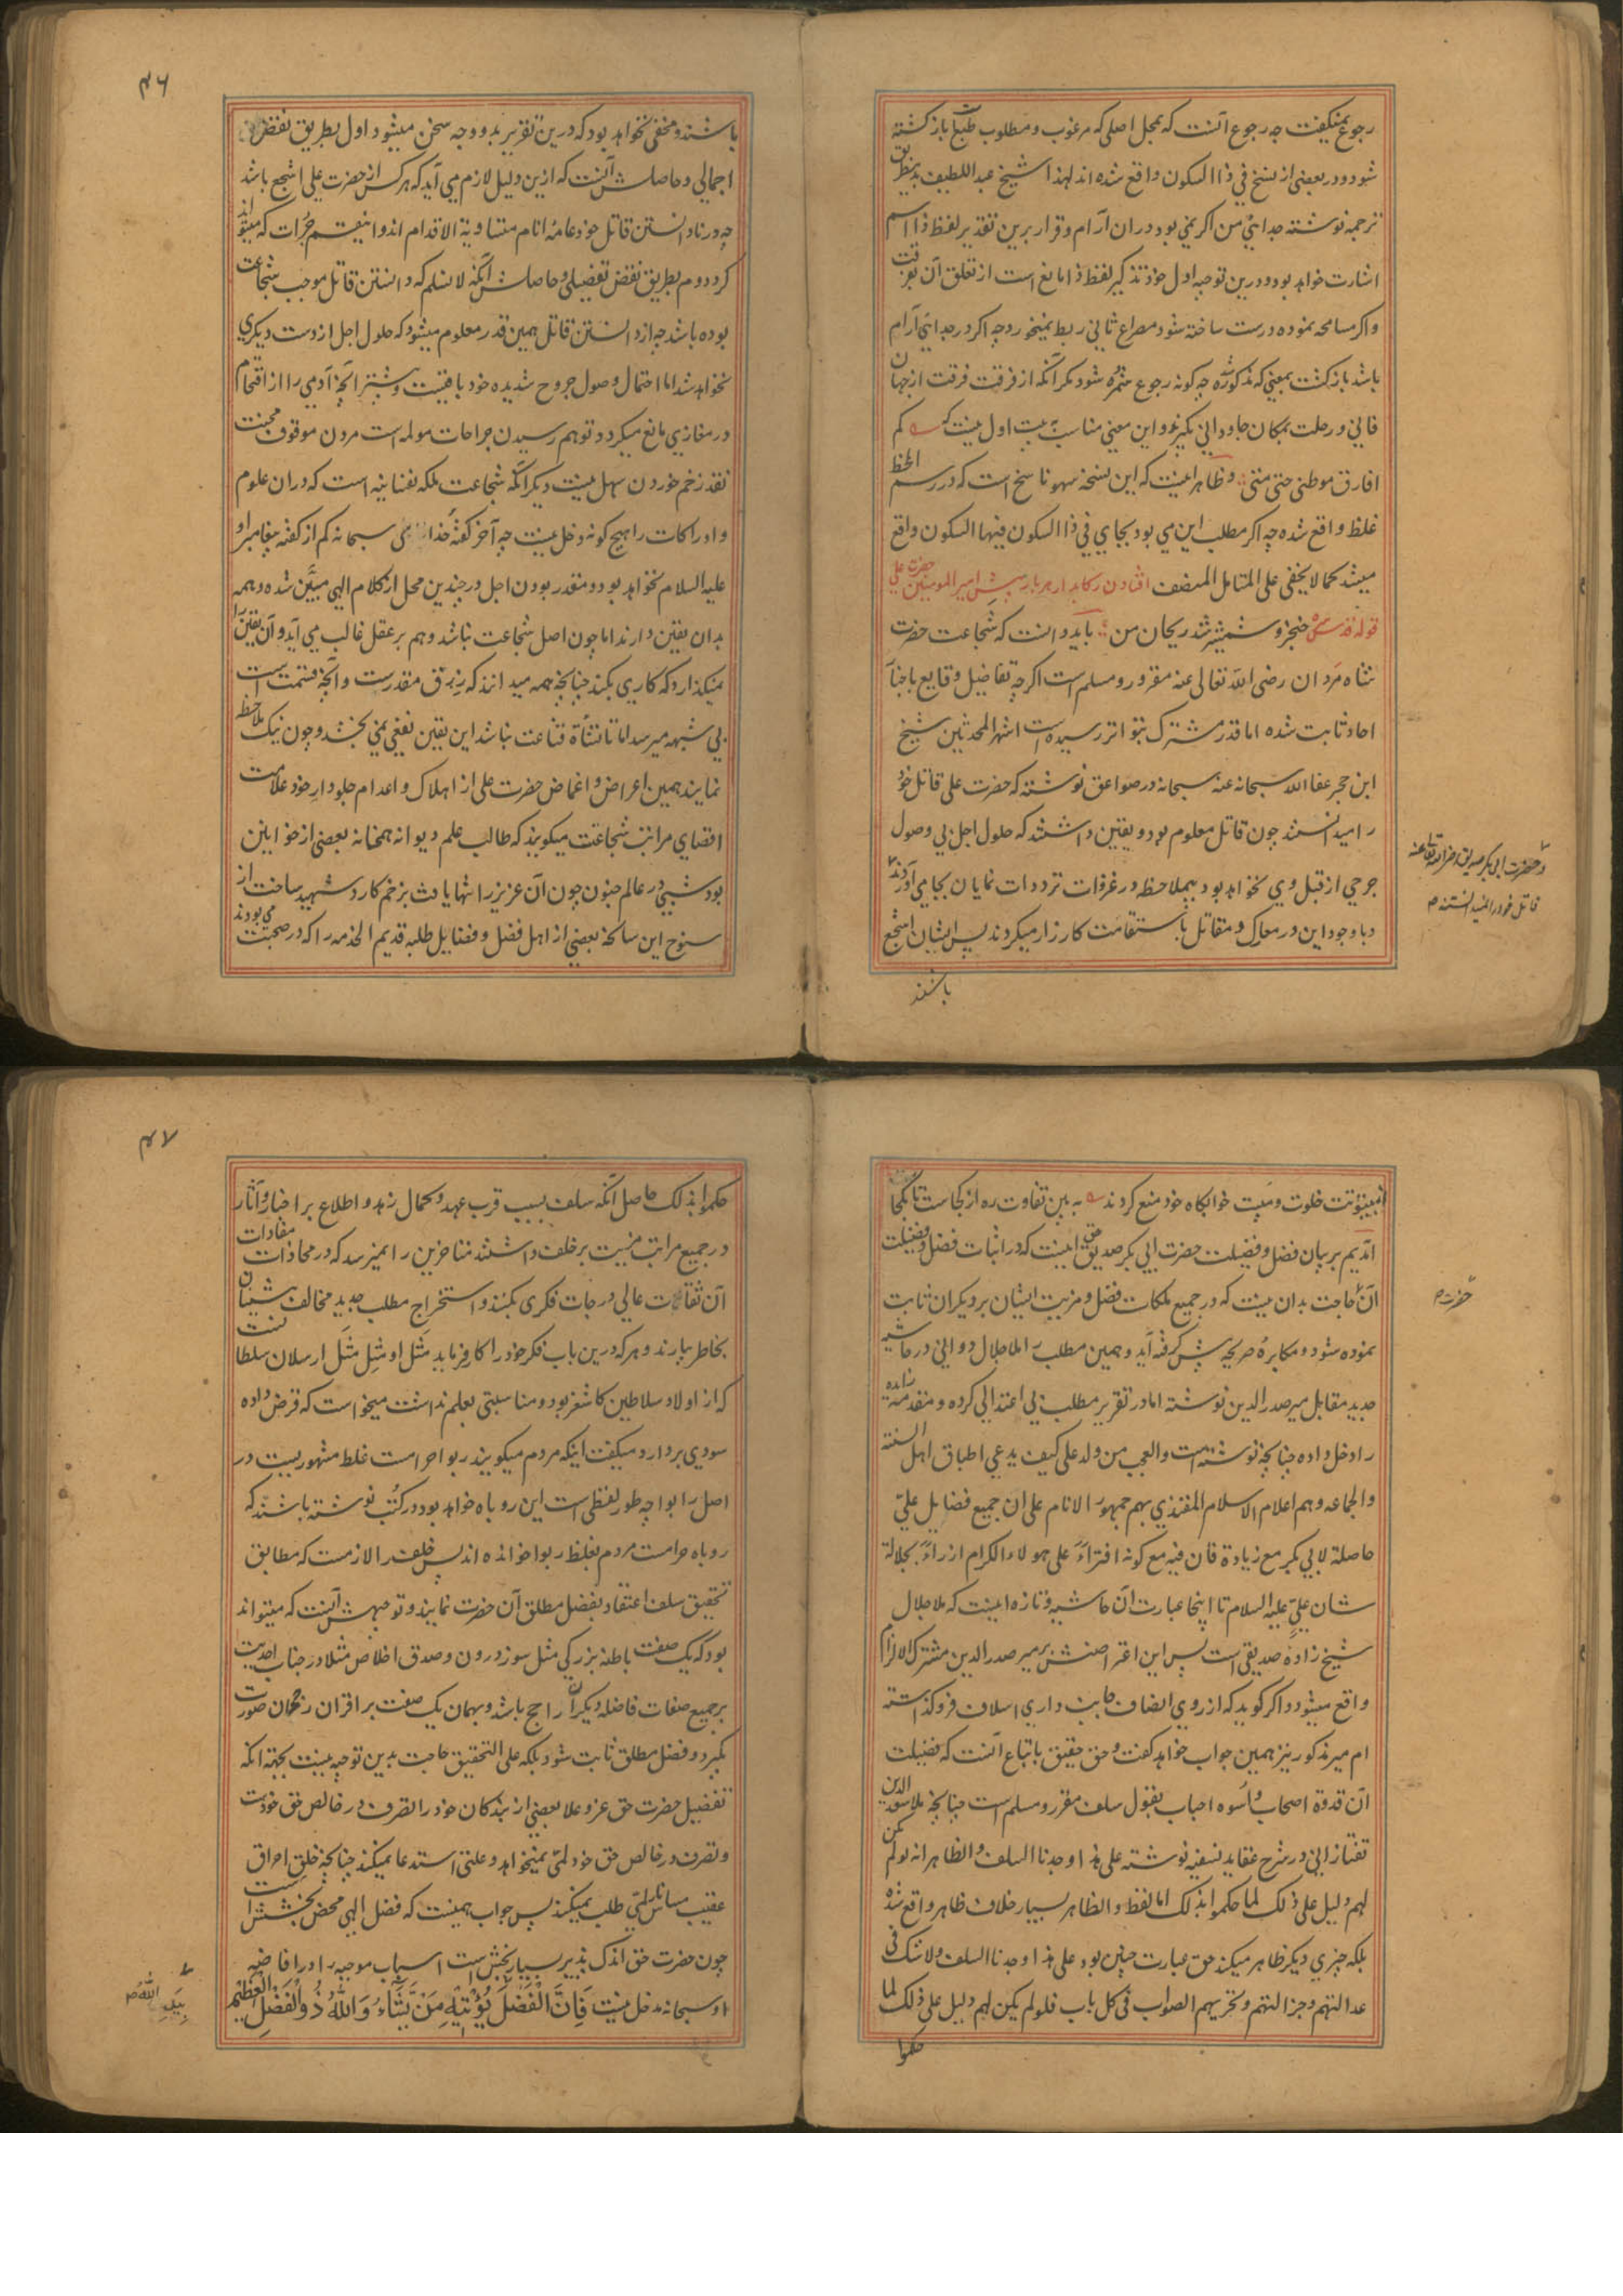 رجوع نمیگفت چه رجوع آنست که بمحل اصلی که مرغوب و مطلوب طبع باشد بازگشته
شود و در بعضی از نسخ فی ذا السکون واقع شده اند لهذا شیخ عبد اللطیف بدینطریق
ترجمه نوشته جدائی من اگر نمی بود در ان آرام و قرار برین تقدیر لفظ ذا اسم
اشارت خواهد بود و درین توجیه اول خود تذکیر لفظ ذا مانع است از تعلق آن بفرقت
و اکر مسامحه نموده درست ساخته شود مصراع ثانی ربط نمیخورد چه اکر در جدائی آرام
باشد بازگشت بمعنی که مذکور شد چه کونه رجوع ثمره شود مکر آنکه از فرقت فرقت از جهان
فانی و رحلت بمکان جاودانی بگیرند و این معنی مناسب به بیت اول نیست که کم
افارق موطنی حتی متی و ظاهر اینست که این نسخه سهو ناسخ است که در رسم الخط
غلط واقع شده چه اکر مطلب این می بود بجای فی ذا السکون فیها السکون واقع
میشد کما لا یخفی علی المتامل المنصف افتادن رکابدار هر بار پیش امیر المومنین حضرت علی
قوله قدس سره خنجر و شمشیر شد ریحان من باید دانست که شجاعت حضرت
شاه مردان رضی الله تعالی عنه مقرر و مسلم است اکرچه تفاصیل وقایع باخبار
احاد ثابت شده اما قدر مشترک بتواتر رسیده است اشهر المحدثین شیخ
ابن حجر عفا الله سبحانه عنه سبحانه در صواعق نوشته که حضرت علی قاتل خود
را میدانستند چون قاتل معلوم بود و یقین داشتند که حلول اجل بی وصول
جرحی از قبل وی نخواهد بود بیملاحظه در غزوات ترددات نمایان بجا می آوردند
و حضرت ابی بکر صدیق رضی الله تعالی عنه
قاتل خود را نمیدانستند
و با وجود این در معارک و مقاتل باستقامت کارزار میکردند پس ایشان اشجع
باشند
۴۶
باشند و مخفی نخواهد بود که درین تقریر بدو وجه سخن میشود اول بطریق نقض
اجمالی و حاصلش آنست که ازین دلیل لازم می آید که هر کس از حضرت علی اشجع باشد
چه در نادانستن قاتل خود عامهٔ انام متساویة الاقدام اند و اینقسم جرأت که میتواند
کرد دوم بطریق نقض تفصیلی و حاصلش آنکه لا نسلم که دانستن قاتل موجب شجاعت
بوده باشد چه از دانستن قاتل همین قدر معلوم میشود که حلول اجل از دست دیکری
نخواهد شد اما احتمال وصول جروح شدیده خود باقیست و بیشتر آنچه آدمی را از اقتحام
در مغازی مانع میگردد توهم رسیدن جراحات مولمه است مردن موقوف محبت
نقد زخم خوردن سهل نیست دیکر آنکه شجاعت ملکه نفسانیه است که در ان علوم
و ادراکات را هیچ کونه دخل نیست چه آخر گفته خدای سبحانه کم از گفته پیغامبر او
علیه السلام نخواهد بود و مقدر بودن اجل در چندین محل از کلام الهی مبیّن شده و همه
بدان یقین دارند اما چون اصل شجاعت نباشد وهم بر عقل غالب می آید و آن یقین را
نمیگذارد که کاری بکند چنانچه همه میدانند که رزق مقدرست و آنچه قسمت است
بی شبهه میرسد اما تا نشأة قناعت نباشد این یقین نفعی نمی بخشد و چون نیک ملاحظه
نمایند همین اعراض و اغماض حضرت علی از اهلاک و اعدام جلودار خود علامت
اقصای مراتب شجاعت میگویند که طالب علم دیوانه همخانه بعضی از خوانین
بود شبی در عالم جنون چون آن عزیز را تنها یافت بزخم کارد شهید ساخت از
سنوح این سانحه بعضی از اهل فضل و فضایل طلبه قدیم الخدمه را که در صحبت می بودند
از بیتوتت خلوت و مبیت خوابکاه خود منع کردند به بین تفاوت ره از کجاست تا بکجا
آمدیم بر بیان فضل و فضیلت حضرت ابی بکر صدیق حق اینست که در اثبات فضل و فضیلت
آن حضرت حاجت بدان نیست که در جمیع ملکات فضل و مزیت ایشان بر دیکران ثابت
نموده شود و مکابرهٔ صریحه پیش گرفته آید و همین مطلب را ملا جلال دوانی در حاشیه
جدید مقابل میر صدر الدین نوشته اما در تقریر مطلب بی اعتدالی کرده و مقدمه زایده
را دخل داده چنانچه نوشته است و العجب من ولد علی کیف یدعی اطباق اهل السنة
و الجماعه و هم اعلام الاسلام المقتدی بهم جمهور الانام علی ان جمیع فضایل علیّ
حاصلة لابی بکر مع زیادة فان فیه مع کونه افتراءً علی هولاء الکرام ازراءً بجلالة
شان علیّ علیه السلام تا اینجا عبارت آن حاشیه و تازه اینست که ملا جلال
شیخ زاده صدیقی است پس این اعتراضش بر میر صدر الدین مشترک الالزام
واقع میشود و اکر گوید که از روی انصاف جانب داری اسلاف فرو گذاشته
ام میر مذکور نیز همین جواب خواهد گفت و حق حقیق باتباع آنست که فضیلت
آن قدوة اصحاب و اسوه احباب بقول سلف مقرر و مسلم است چنانچه ملا سعد الدین
تفتازانی در شرح عقاید نسفیه نوشته علی هذا وجدنا السلف و الظاهر انه لو لم یکن
لهم دلیل علی ذلک لما حکموا بذلک اما لفظ و الظاهر بسیار خلاف ظاهر واقع شده
بلکه چیزی دیکر ظاهر میکند حق عبارت چنین بود علی هذا وجدنا السلف و لا شک فی
عدالتهم و جزالتهم و تحریهم الصواب فی کل باب فلو لم یکن لهم دلیل علی ذلک لما
حکموا
۴۷
حکموا بذلک حاصل آنکه سلف بسبب قرب عهد و کمال زهد و اطلاع بر اخبار و آثار
در جمیع مراتب مزیت بر خلف داشتند متاخرین را نمیرسد که در محاذات مفادات
آن ثقات عالی درجات فکری بکنند و استخراج مطلب جدید مخالف پیشینان
بخاطر بیارند و هر که درین باب فکر خود را کار فرماید مَثَل او مِثل مَثَل ارسلان سلطانست
که از اولاد سلاطین کاشغر بود و مناسبتی بعلم نداشت میخواست که قرض داده
سودی بردارد میگفت اینکه مردم میگویند ربوا حرامست غلط مشهوریست در
اصل ربوا چه طور لفظی است این روباه خواهد بود در کتب نوشته باشند که
روباه حرامست مردم بغلط ربوا خوانده اند پس خلف را لازمست که مطابق
تحقیق سلف اعتقاد بفضل مطلق آن حضرت نمایند و توجیهش آنست که میتواند
بود که یک صفت باطنهٔ بزرگی مثل سوز درون و صدق اخلاص مثلا در جناب احدیت
بر جمیع صفات فاضله دیکران راجح باشد و بهمان یک صفت بر اقران رجحان صورت
بگیرد و فضل مطلق ثابت شود بلکه علی التحقیق حاجت بدین توجیه نیست بجهة آنکه
تفضیل حضرت حق عز و علا بعضی از بندکان خود را تصرف در خالص حق خودست
و تصرف در خالص حق خود لمی نمیخواهد و علتی استدعا نمیکند چنانچه خلق احراق
عقیب مساس نار لمّی طلب نمیکند پس جواب همینست که فضل الهی محض بخشش است
چون حضرت حق اندک پذیر بسیار بخش است اسباب موجبه را در افاضهٔ
او سبحانه مدخل نیست فَاِنَّ الْفَضْلَ بِیَدِ اللّٰهِ یُؤْتِیْهِ مَنْ یَّشَآءُ وَ اللّٰهُ ذُو الْفَضْلِ الْعَظِیْمِ